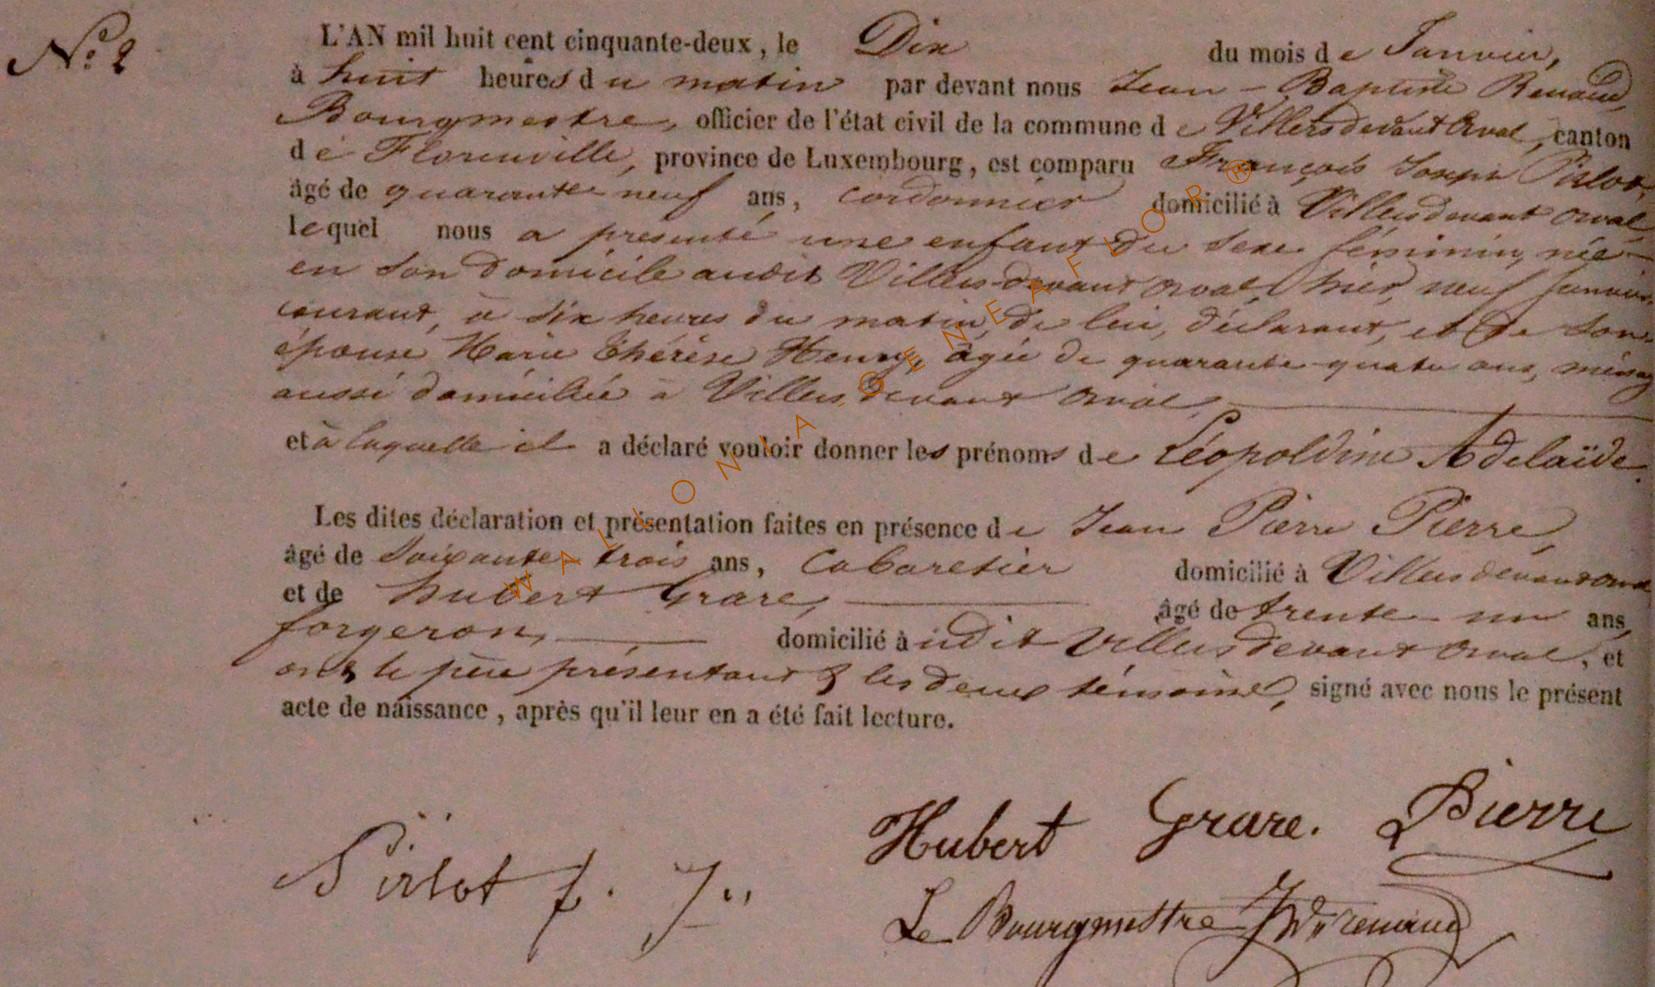 N.º 2
L'AN mil huit cent cinquante-deux, le Dix du mois de Janvier,
à huit heures du matin par devant nous Jean-Baptiste Renaud,
Bourgmestre, officier de l'état civil de la commune de Villers devant Orval, canton
de Florenville, province de Luxembourg, est comparu François Joseph Pirlot,
âgé de quarante neuf ans, cordonnier domicilié à Villers devant orval,
lequel nous a presenté une enfant du sexe féminin, née
en son domicile audit Villers-devant orval, hier, neuf janvier
courant, à six heures du matin, de lui, déclarant, et de son
épouse Marie Thérèse Henry, âgée de quarante-quatre ans,
aussi domiciliée à Villers devant orval,
et à laquelle il a déclaré vouloir donner les prénoms de Léopoldine Adelaïde.
Les dites déclaration et présentation faites en présence de Jean Pierre Pierre,
âgé de Soixante trois ans, Cabaretier domicilié à Villers devant orval
et de hubert Grare, âgé de trente un ans,
forgeron, domicilié à udit Villers devant orval, et
ont le père présentant & les deux témoins, signé avec nous le présent
acte de naissance, après qu'il leur en a été fait lecture.
Hubert Grare. Pierre
Pirlot f. J.
Le Bourgmestre
WALLONIA GENEAFLOR ®